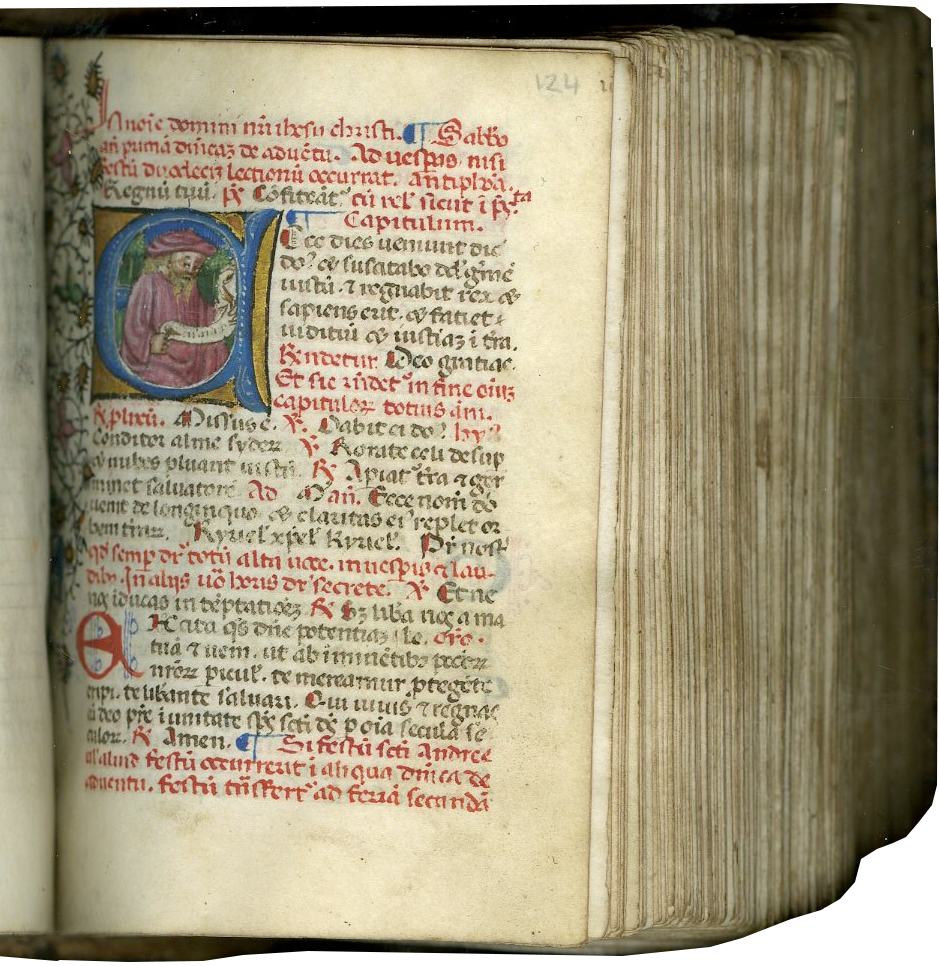 124
In noīe domini nr̄i ihesu christi. ¶ Sabb̄o
an̄ primā dn̄icaꝫ de advētu. Ad uesp̄as nisi
festū duodeciꝫ lectionū occurrat. antiphōa.
Regnū tuū. p̄s Cōfiteāt̄ cū reł sicut ī p̄s.
¶ Capitulum.
Ecce dies ueniunt dic̄
doꝰ ⁊ suscitabo dd̄ gꝰmē
iustū ⁊ regnabit rex ⁊
sapiens erit. ⁊ faciet
iudiciū ⁊ iusticiaꝫ ī tr̄a.
R̄ndetur. Deo gratias.
Et sic rn̄det᷑ in fine oīuꝫ
capituloꝝ totius ān̄i.
R̄ plixū. Missus ē. ℣. Dabit ei doꝰ hyꝰ
Conditor alme syderꝝ ℣. Rorate celi desup̄
⁊ nubes pluant iustū. R̄ Apiat᷑ tr̄a ⁊ ger
minet saluatorē. Ad Maḡ. Ecce nom̄ dō
uenit de longinquo ⁊ claritas eiꝰ replet or
bem t̄rarꝝ. Kyriel̄ xp̄el̄ Kyriel̄. Pr̄ nost̄
qd̄ semp̄ dr̄ totū alta uoce. in uesp̄is ⁊ lau-
dibꝫ. In aliis uō horis dr̄ secrete. ℣ Et ne
nos īducas in tēptationeꝫ R̄ Sꝫ liba nos a ma
lo. oro.
Excita q̄s dn̄e potentiaꝫ
tuā ⁊ ueni. ut ab īminētibꝫ pcc̄oꝝ
nr̄oꝝ picul̄. te mereamur ptegēte
eripi. te libante saluari. Qui uiuis ⁊ regnas
cū deo pr̄e ī unitate sp̄s sc̄ti ds̄ p oīa secula se
culoꝝ. R̄ Amen. ¶ Si festū sc̄ti Andree
ul̄ aliud festū occurrerit ī aliqua dn̄ica de
aduentu. festū trāsfert᷑ ad feriā secundā